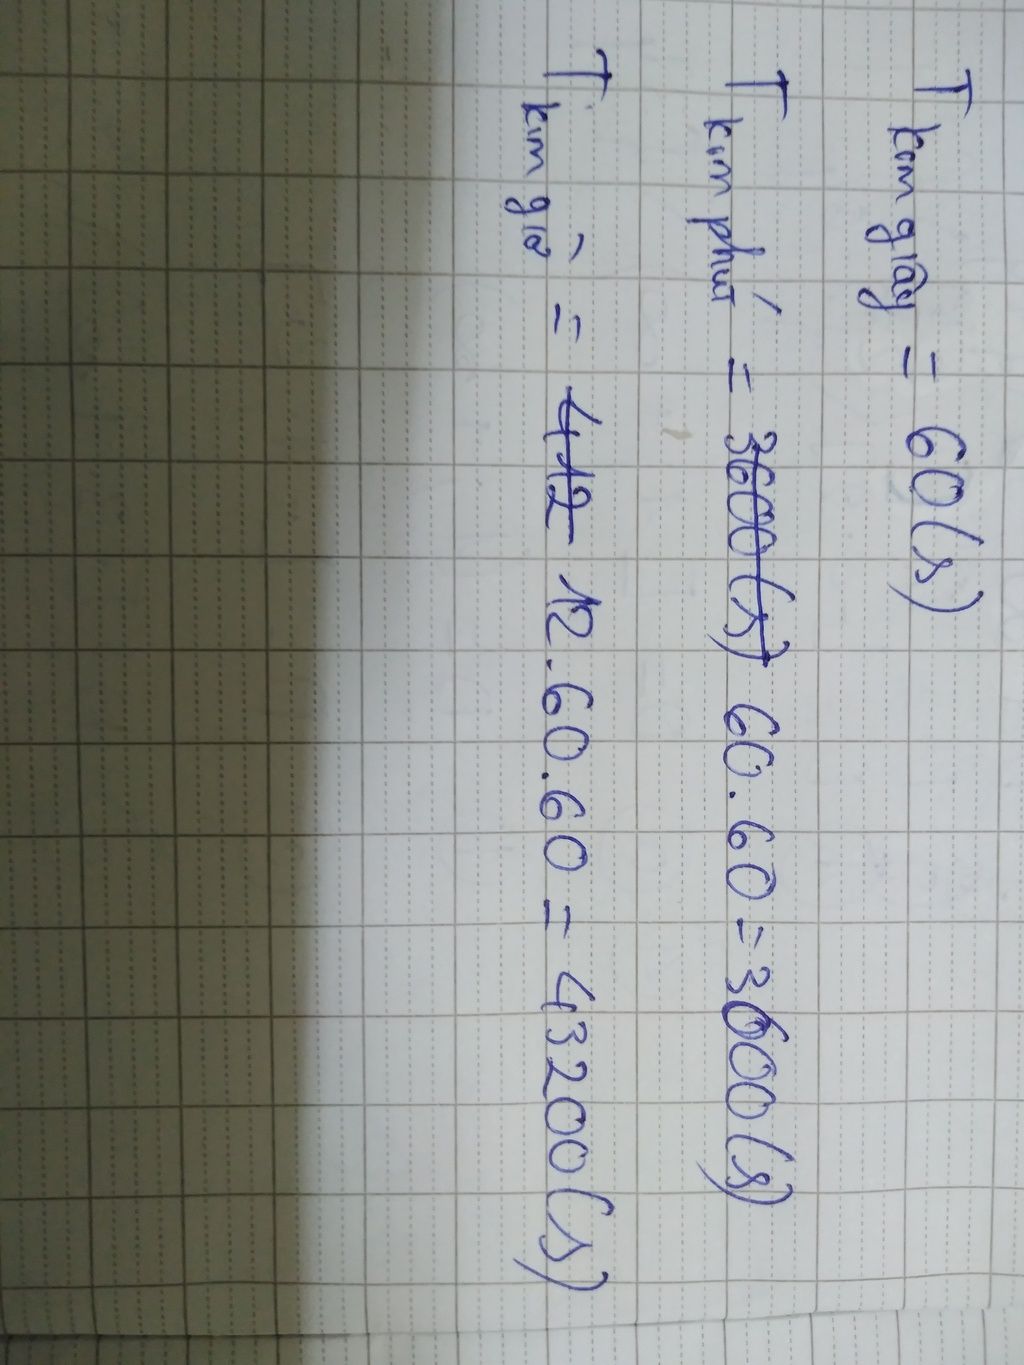 T kim giây = 60(s)
T kim phút = 3600(s) 60.60 = 3600(s)
T kim giờ = 412 12.60.60 = 43200(s)